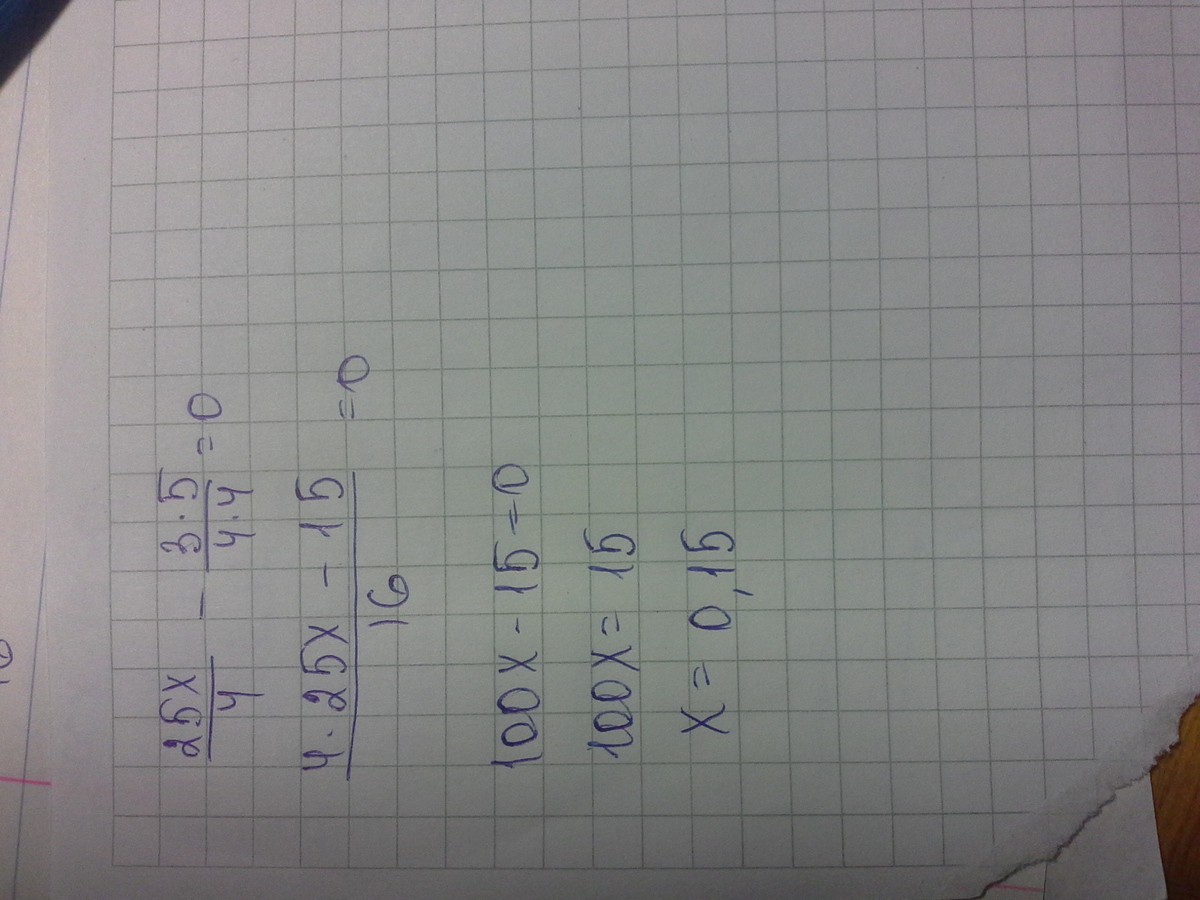 25x/4 - 3·5/4·4 = 0
4·25x - 15/16 = 0
100x - 15 = 0
100x = 15
x = 0,15